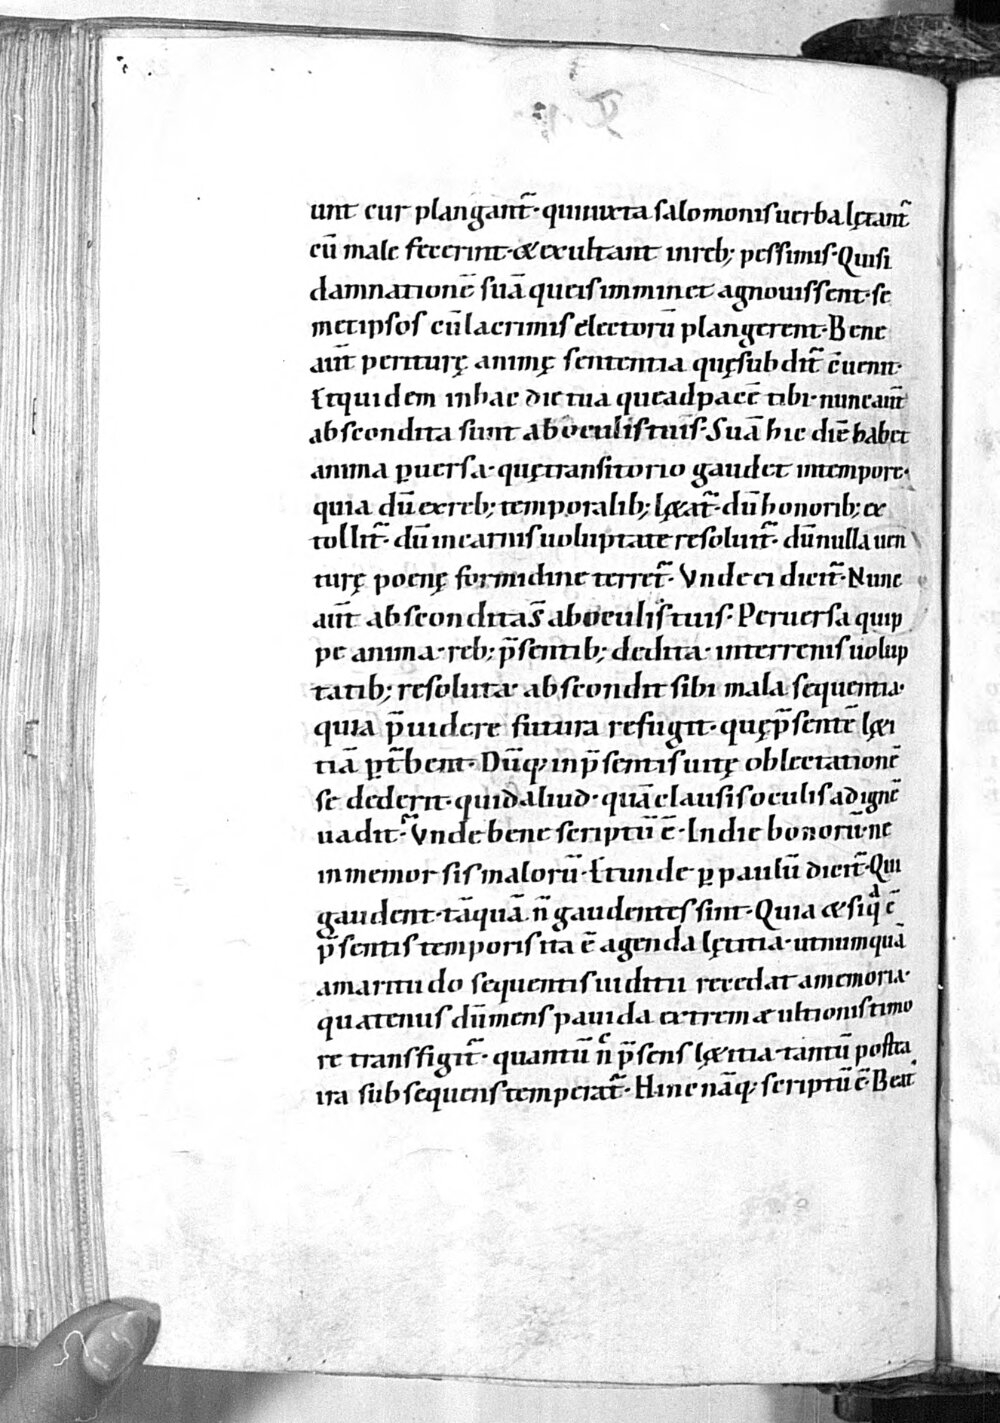 unt cur plangant᷑· qui iuxta salomonis uerba lętant᷑
cū male fecerint· & exultant in reb; pessimis· Qui si
damnationē suā queis imminet agnouissent· se
metipsos cū lacrimis electorū plangerent· Bene
aut̄ periturę animę sententia quę subdit᷑ c̄uenit·
Et quidem in hac die tua quę ad pacē tibi· nunc aut̄
abscondita sunt ab oculis tuis· Suā hic diē habet
anima ꝑuersa· quę transitorio gaudet in tempore·
quia dū ex reb; temporalib; lęt&at᷑· dū honorib; ex
tollit᷑· dū in carnis uoluptate resoluit᷑· dū nulla uen
turę poenę formidine terret᷑· Vnde ei dicit᷑· Nunc
aut̄ abscondita s̄ ab oculis tuis· Peruersa quip
pe anima· reb; p̄sentib; dedita· in terrenis uolup
tatib; resoluta· abscondit sibi mala sequentia·
quia p̄uidere futura refugit· quę p̄sentē lęti
tiā ꝑt᷑bent· Dūq; in p̄sentis uitę oblectationē
se dederit· quid aliud· quā clausis oculis ad ignē
uadit᷑· Vnde bene scriptū ē· In die bonorū· ne
inmemor sis malorū· Et unde ꝑ paulū dicit᷑· Qui
gaudent· tāquā n̄ gaudentes sint· Quia & siq̇d ē
p̄sentis temporis ita ē agenda lętitia· ut numquā
amaritudo sequentis iuditii recedat a memoria·
quatenus dū mens pauida extremæ ultionis timo
re transfigit᷑· quantū nc̄ p̄sens lætitia· tantū postea
ira subsequens temperat᷑· Hinc nāq; scriptū ē· Beat᷒